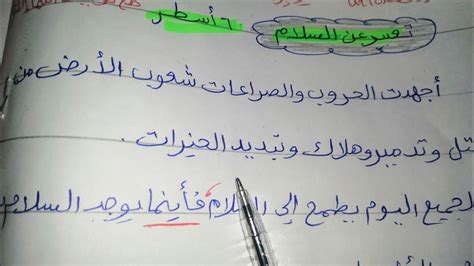 تعبير عن السلام ٦ أسطر
أجهدت الحروب والصراعات شعوب الأرض من
تل وتدمير وهلاك وتبديد الخيرات.
لجميع اليوم يطمح إلى السلام فأينما يوجد السلام